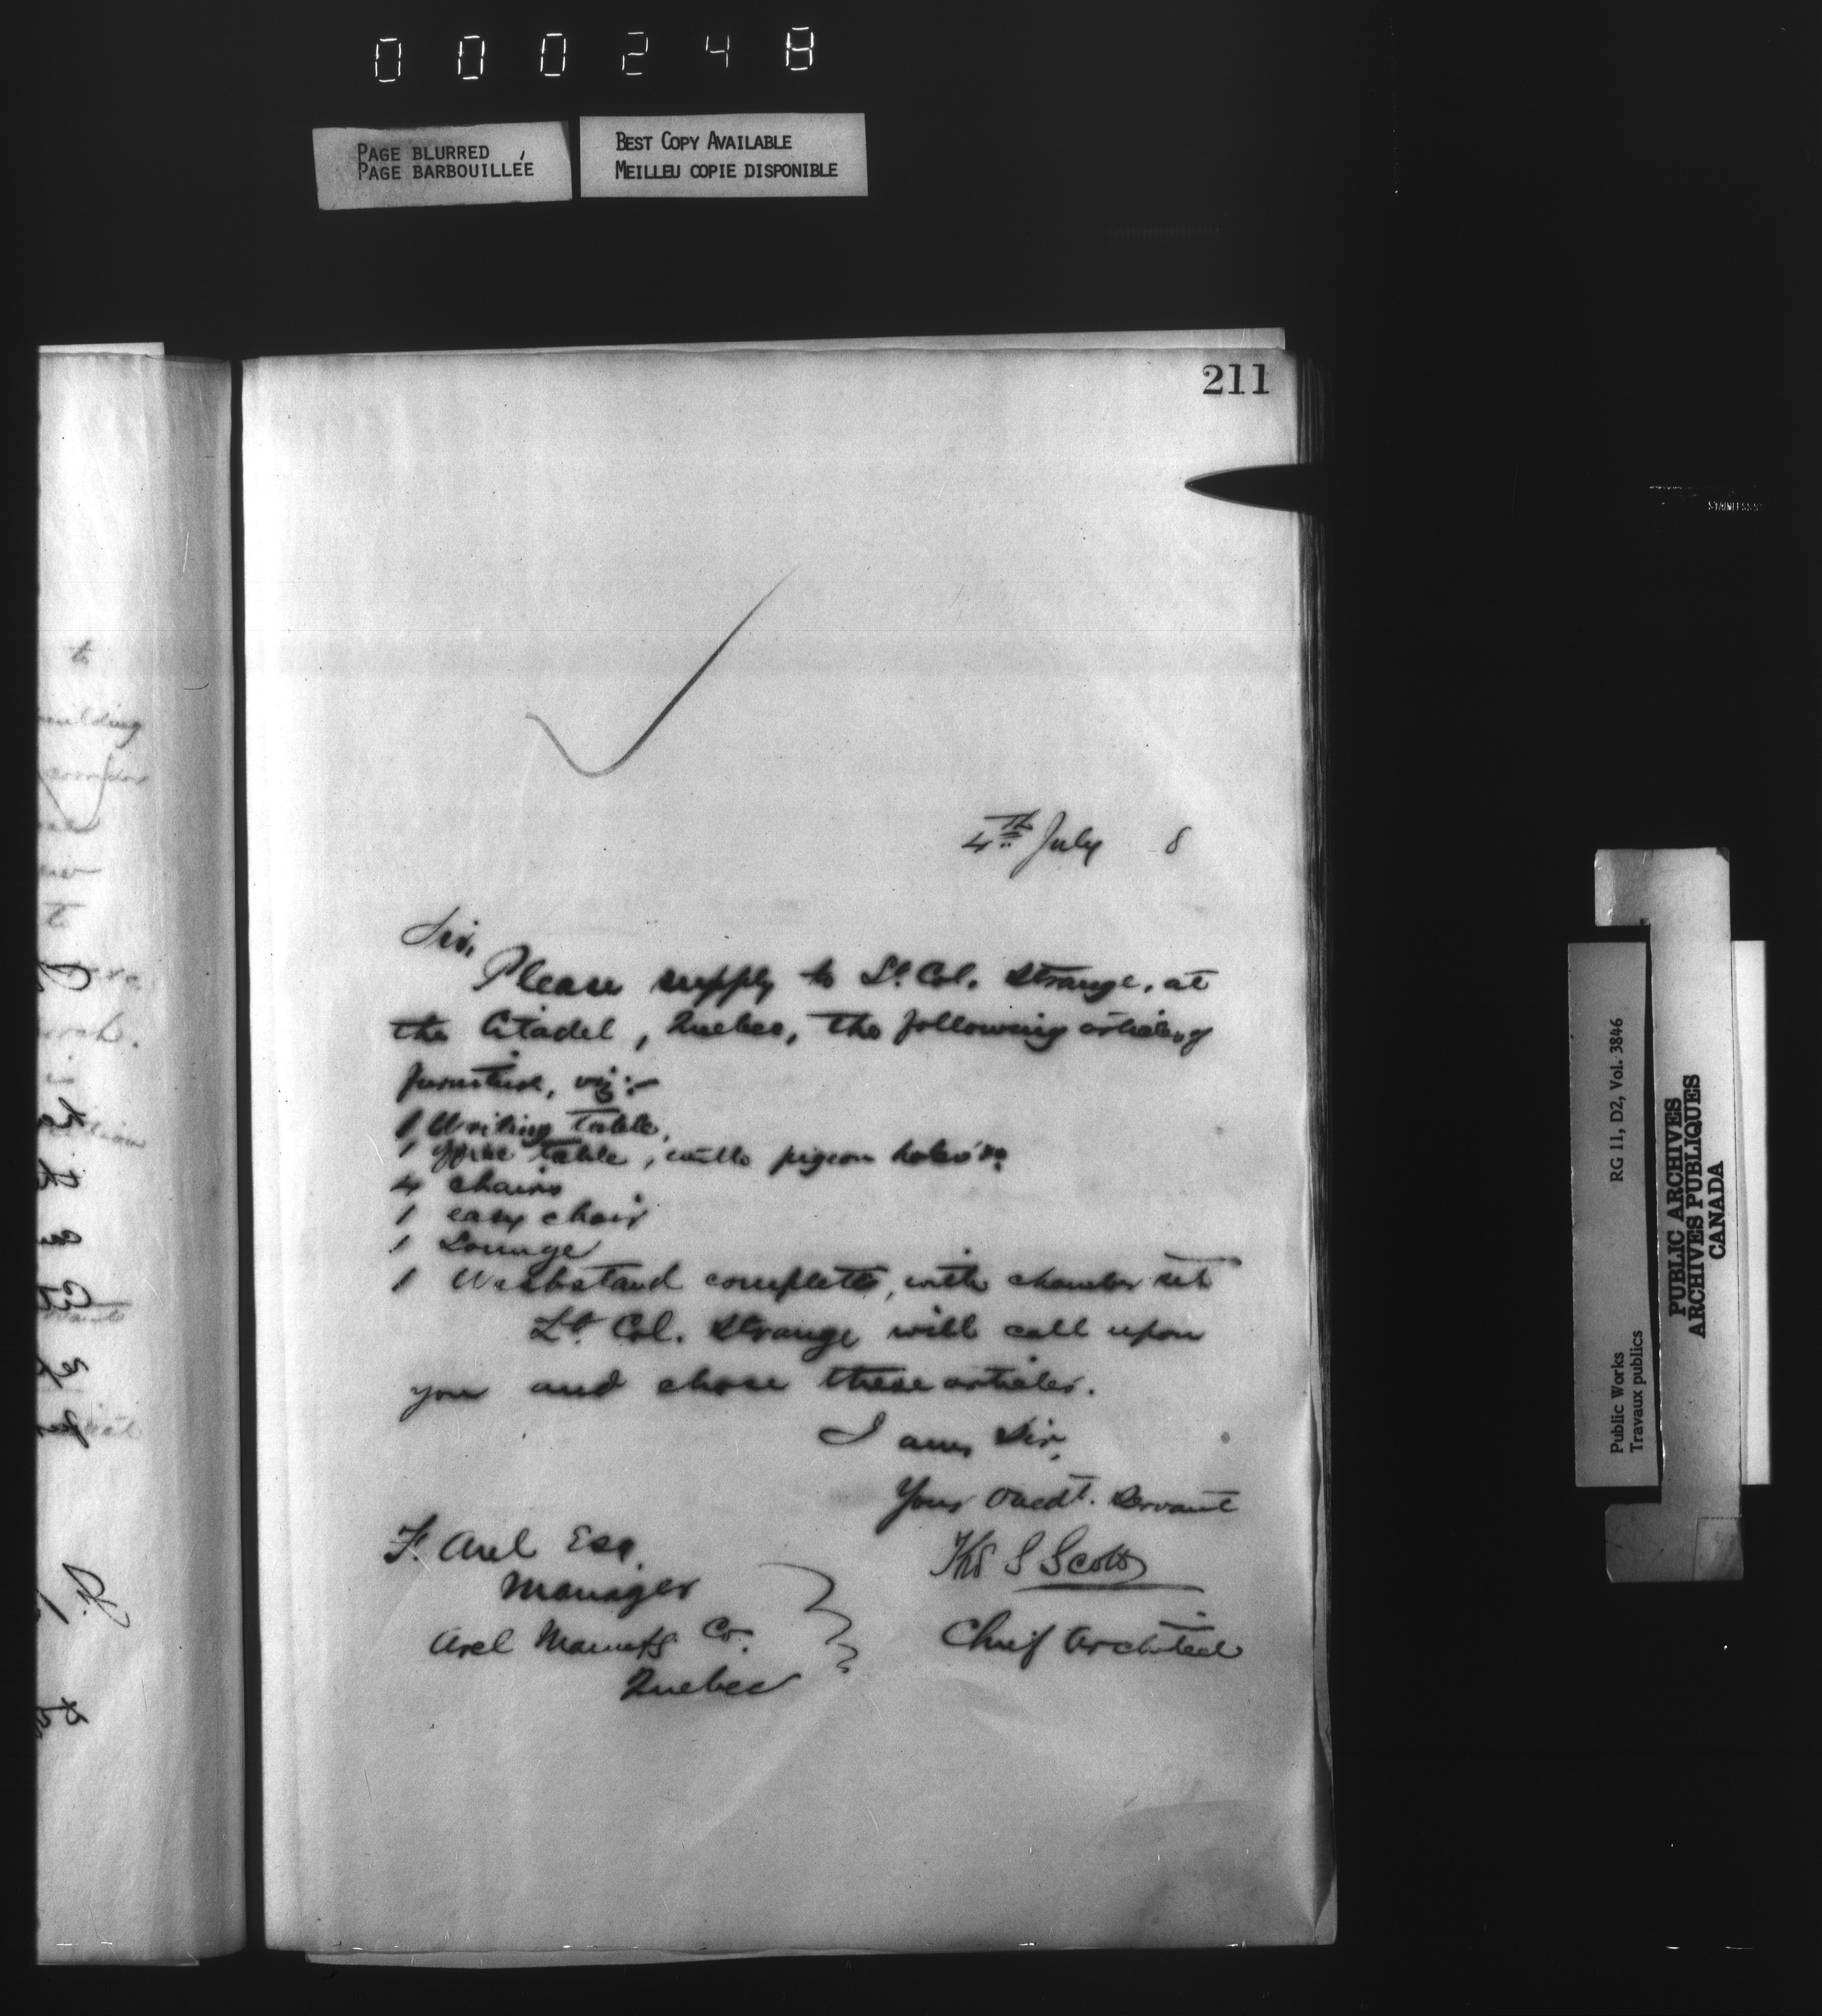 000248
PAGE BLURRED
PAGE BARBOUILLÉE
BEST COPY AVAILABLE
MEILLEU COPIE DISPONIBLE
211
4th July 8
Sir,
Please supply to Lt. Col. Strange, at
the Citadel, Quebec, the following articles of
furniture, viz:-
1 Writing Table,
1 Office table, with pigeon holes &c
4 chairs
1 easy chair
1 Lounge
1 Washstand complette, with chamber set
Lt Col. Strange will call upon
you and chose these articles.
I am, Sir,
Your Obedt. Servant
Ths S Scott
Chief Architect
F. Arel Esq.
Manager
Arel Manufg Co.
Quebec
to
building
corridor
RG 11, D2, Vol. 3846
Public Works
Travaux publics
PUBLIC ARCHIVES
ARCHIVES PUBLIQUES
CANADA
STAINLESS